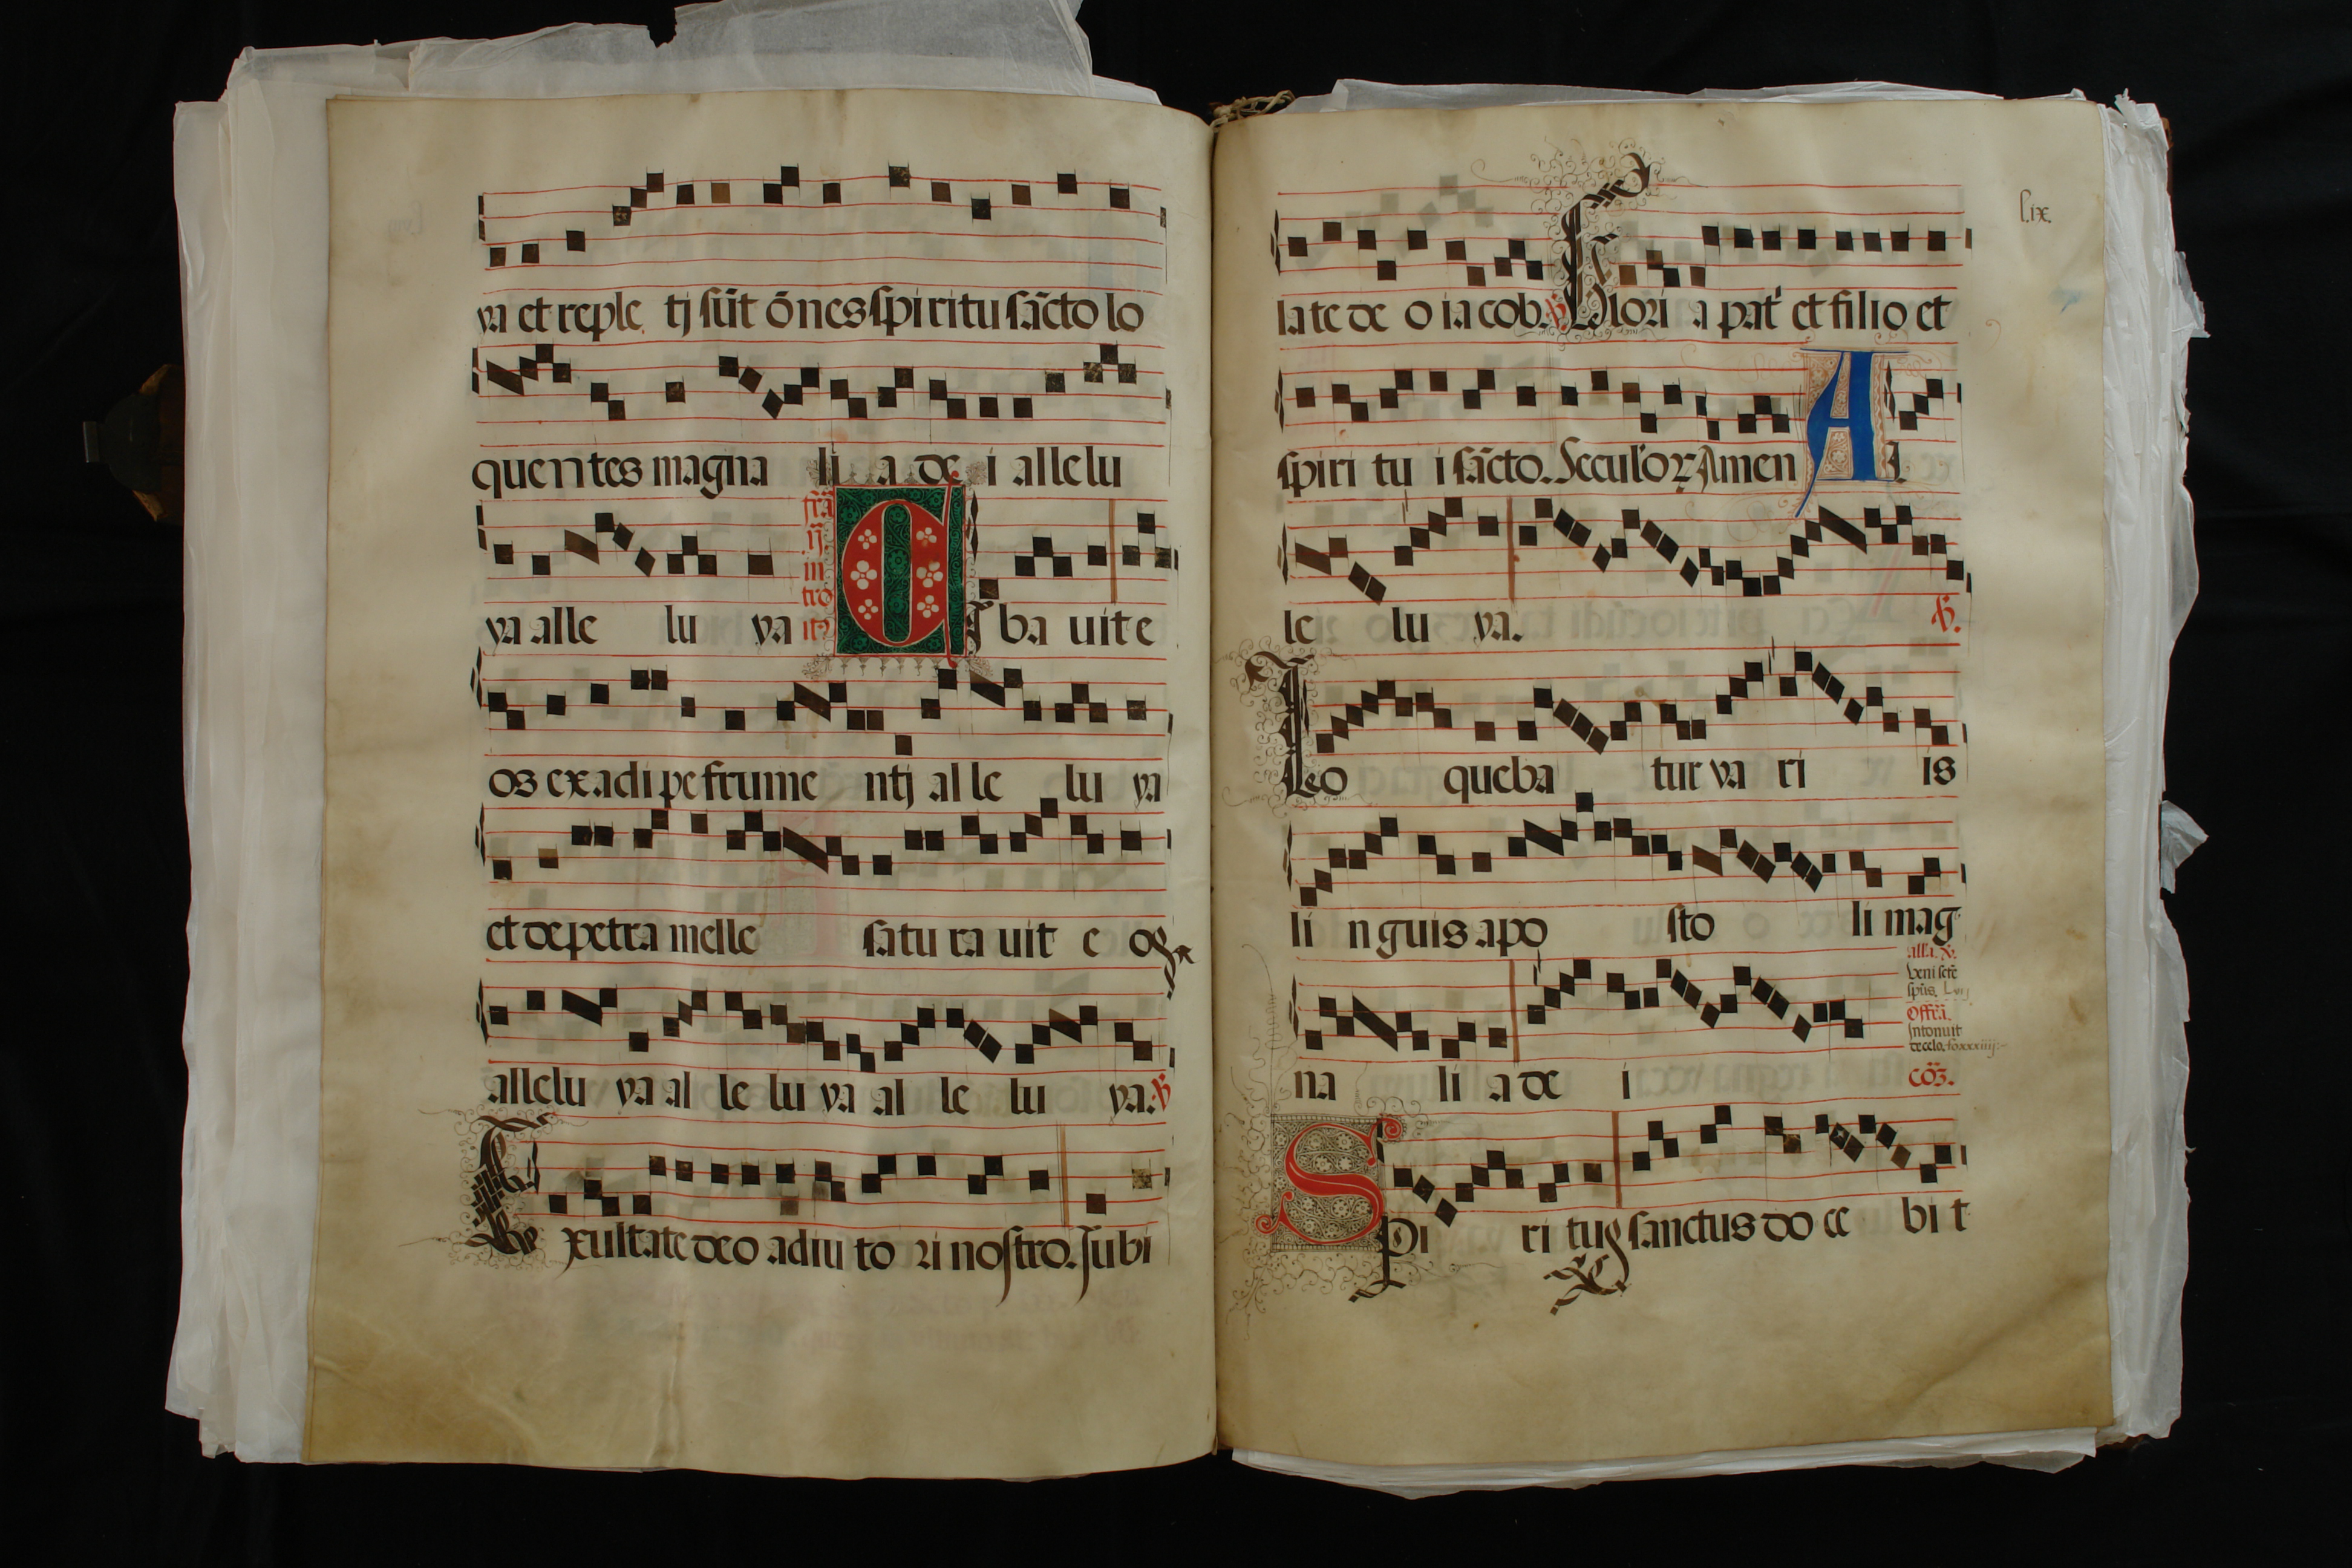 ya et reple tj sūt ōnes spiritu sācto lo
quentes magna li a de i allelu
ya alle lu ya
frā
ij
in
tro
itꝰ
CIba uit e
os ex adi pe frume ntj al le lu ya
et de petra melle satu ra uit e os
allelu ya al le lu ya al le lu ya. ℣
Exultate deo adiu to ri nostro. Jubi
l.ix.
la te de o ia cob. ℣ Glori a pat̄ et filio et
spiri tu i sācto. Seculoꝝ Amen Al
le lu ya. ℣.
Loo queba tur va ri is
li n guis apo sto li mag
alła. ℣.
Veni scē
spūs.
Offrī.
Intonuit
de celo. fo. xxxiiij.
na li a de i
cō3.
Spi ri tus sanctus do ce bi t